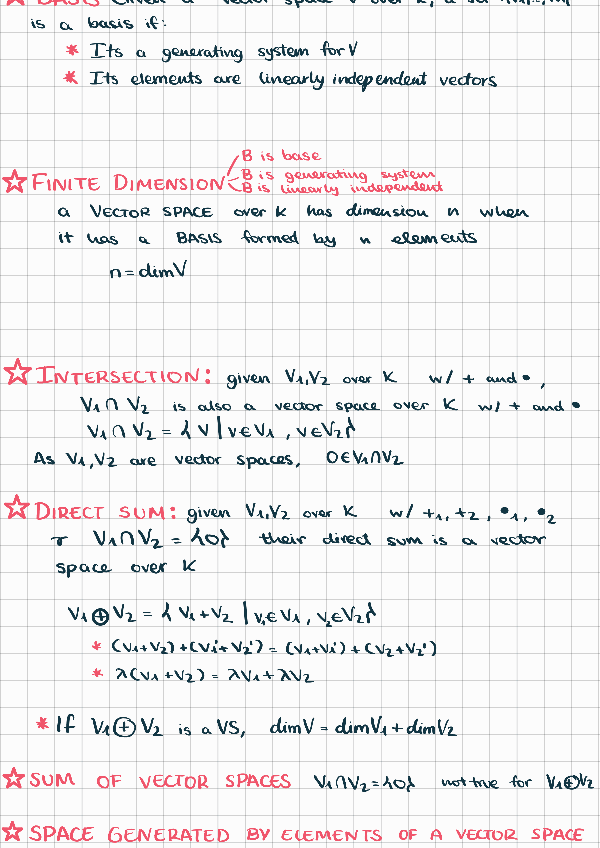 ☆ BASIS Given a vector space V over K, a set
is a basis if:
* Its a generating system for V
* Its elements are linearly independent vectors
B is base
B is generating system
☆ FINITE DIMENSION
B is linearly independent
a VECTOR SPACE over K has dimension n when
it has a BASIS formed by n elements
n = dimV
☆ INTERSECTION: given V₁,V₂ over K w/ + and •,
V₁ ∩ V₂ is also a vector space over K w/ + and •
V₁ ∩ V₂ = { V | V∈V₁ , V∈V₂}
As V₁,V₂ are vector spaces, 0∈V₁∩V₂
☆ DIRECT SUM: given V₁,V₂ over K w/ +₁, +₂, •₁, •₂
V₁ ∩ V₂ = {0} their direct sum is a vector
space over K
V₁ ⊕ V₂ = { V₁ + V₂ | V₁∈V₁ , V₂∈V₂}
* (V₁+V₂) + (V₁'+V₂') = (V₁+V₁') + (V₂+V₂')
* λ(V₁+V₂) = λV₁ + λV₂
* If V₁ ⊕ V₂ is a VS, dimV = dimV₁ + dimV₂
☆ SUM OF VECTOR SPACES V₁∩V₂ = {0} not true for V₁⊕V₂
☆ SPACE GENERATED BY ELEMENTS OF A VECTOR SPACE